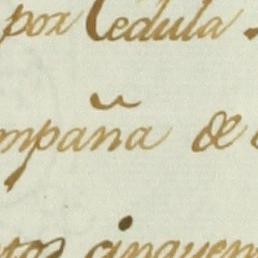 por Cedula
mpaña de
tos cinquen